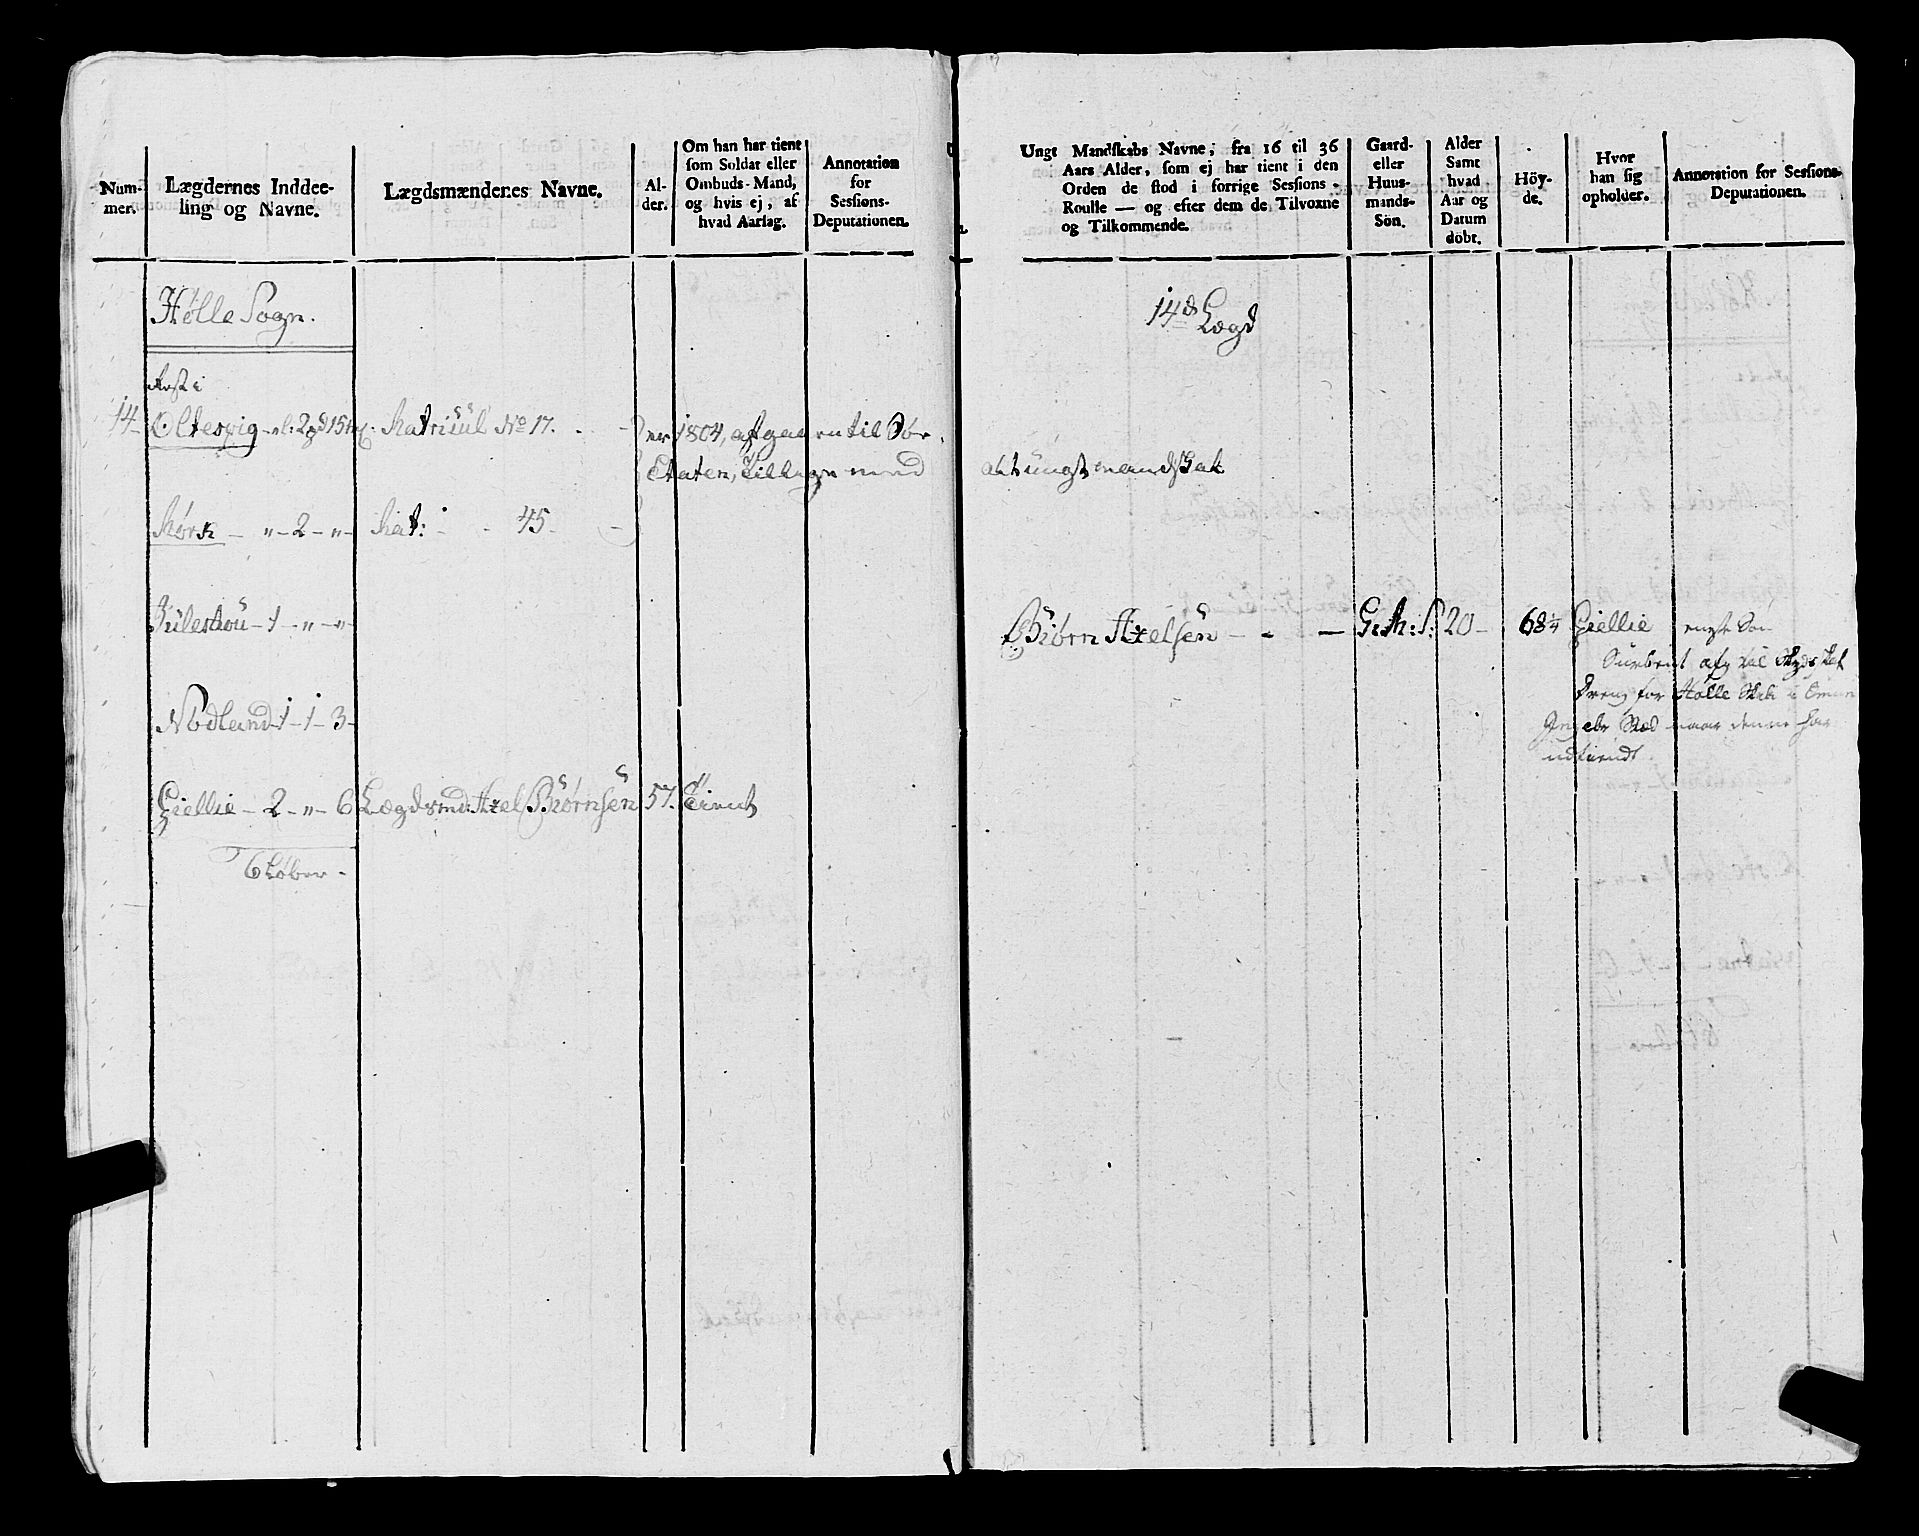 Num-
mer.
Lægdernes Inddee-
ling og Navne.
Lægdsmændenes Navne.
Al-
der.
Om han har tient
som Soldat eller
Ombuds-Mand,
og hvis ej, af
hvad Aarsag.
Annotation
for
Sessions-
Deputationen.
Hølle Sogn.
14
Oltesvig 15 Matricul No 17. er 1804, afgaaen til Søe
Etaten, tillige med
Mørk - " - 2 - " - Mat: - - 45 -
- 1 - " - " -
Nodland - 1 - 1 - 3 -
Giellie - 2 - " - 6 Lægdsmd: Axel Biørnsen 57. Tient
6 Løber -
Ungt Mandskabs Navne, fra 16 til 36
Aars Alder, som ej har tient i den
Orden de stod i forrige Sessions-
Roulle — og efter dem de Tilvoxne
og Tilkommende.
Gaard-
eller
Huus-
mands-
Sön.
Alder
Samt
hvad
Aar og
Datum
döbt.
Höy-
de.
Hvor
han sig
opholder.
Annotation for Sessions-
Deputationen.
14de Lægd
alt ungt mandskab
Biørn Axelsen - - - G: M: S: 20 - 68 1/4 Giellie
afg til
Dreng for Holle
naar denne har
udtient.